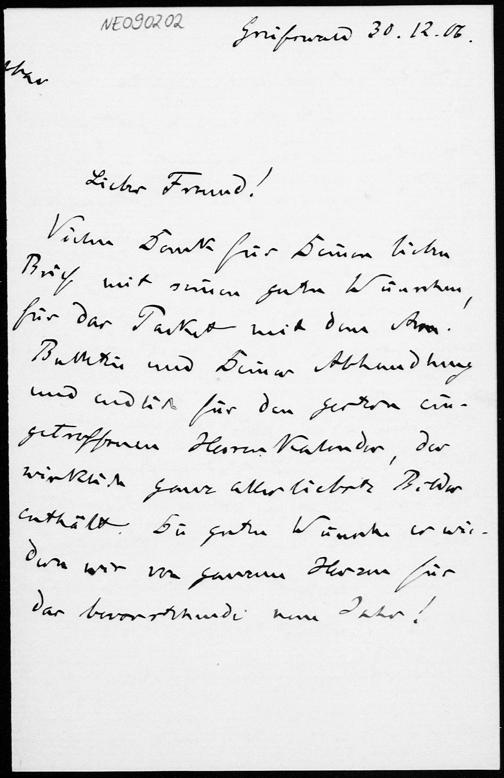 NE090202
Greifswald 30.12.06.
Lieber Freund!
Vielen Dank für Deinen lieben
Brief mit seinen guten Wünschen,
für das Packet mit dem Am.
Bulletin und Deiner Abhandlung
und endlich für den gestern ein-
getroffenen Herren Kalender, der
wirklich ganz allerliebste Bilder
enthält. Die guten Wünsche erwie-
dern wir von ganzem Herzen für
das bevorstehende neue Jahr!